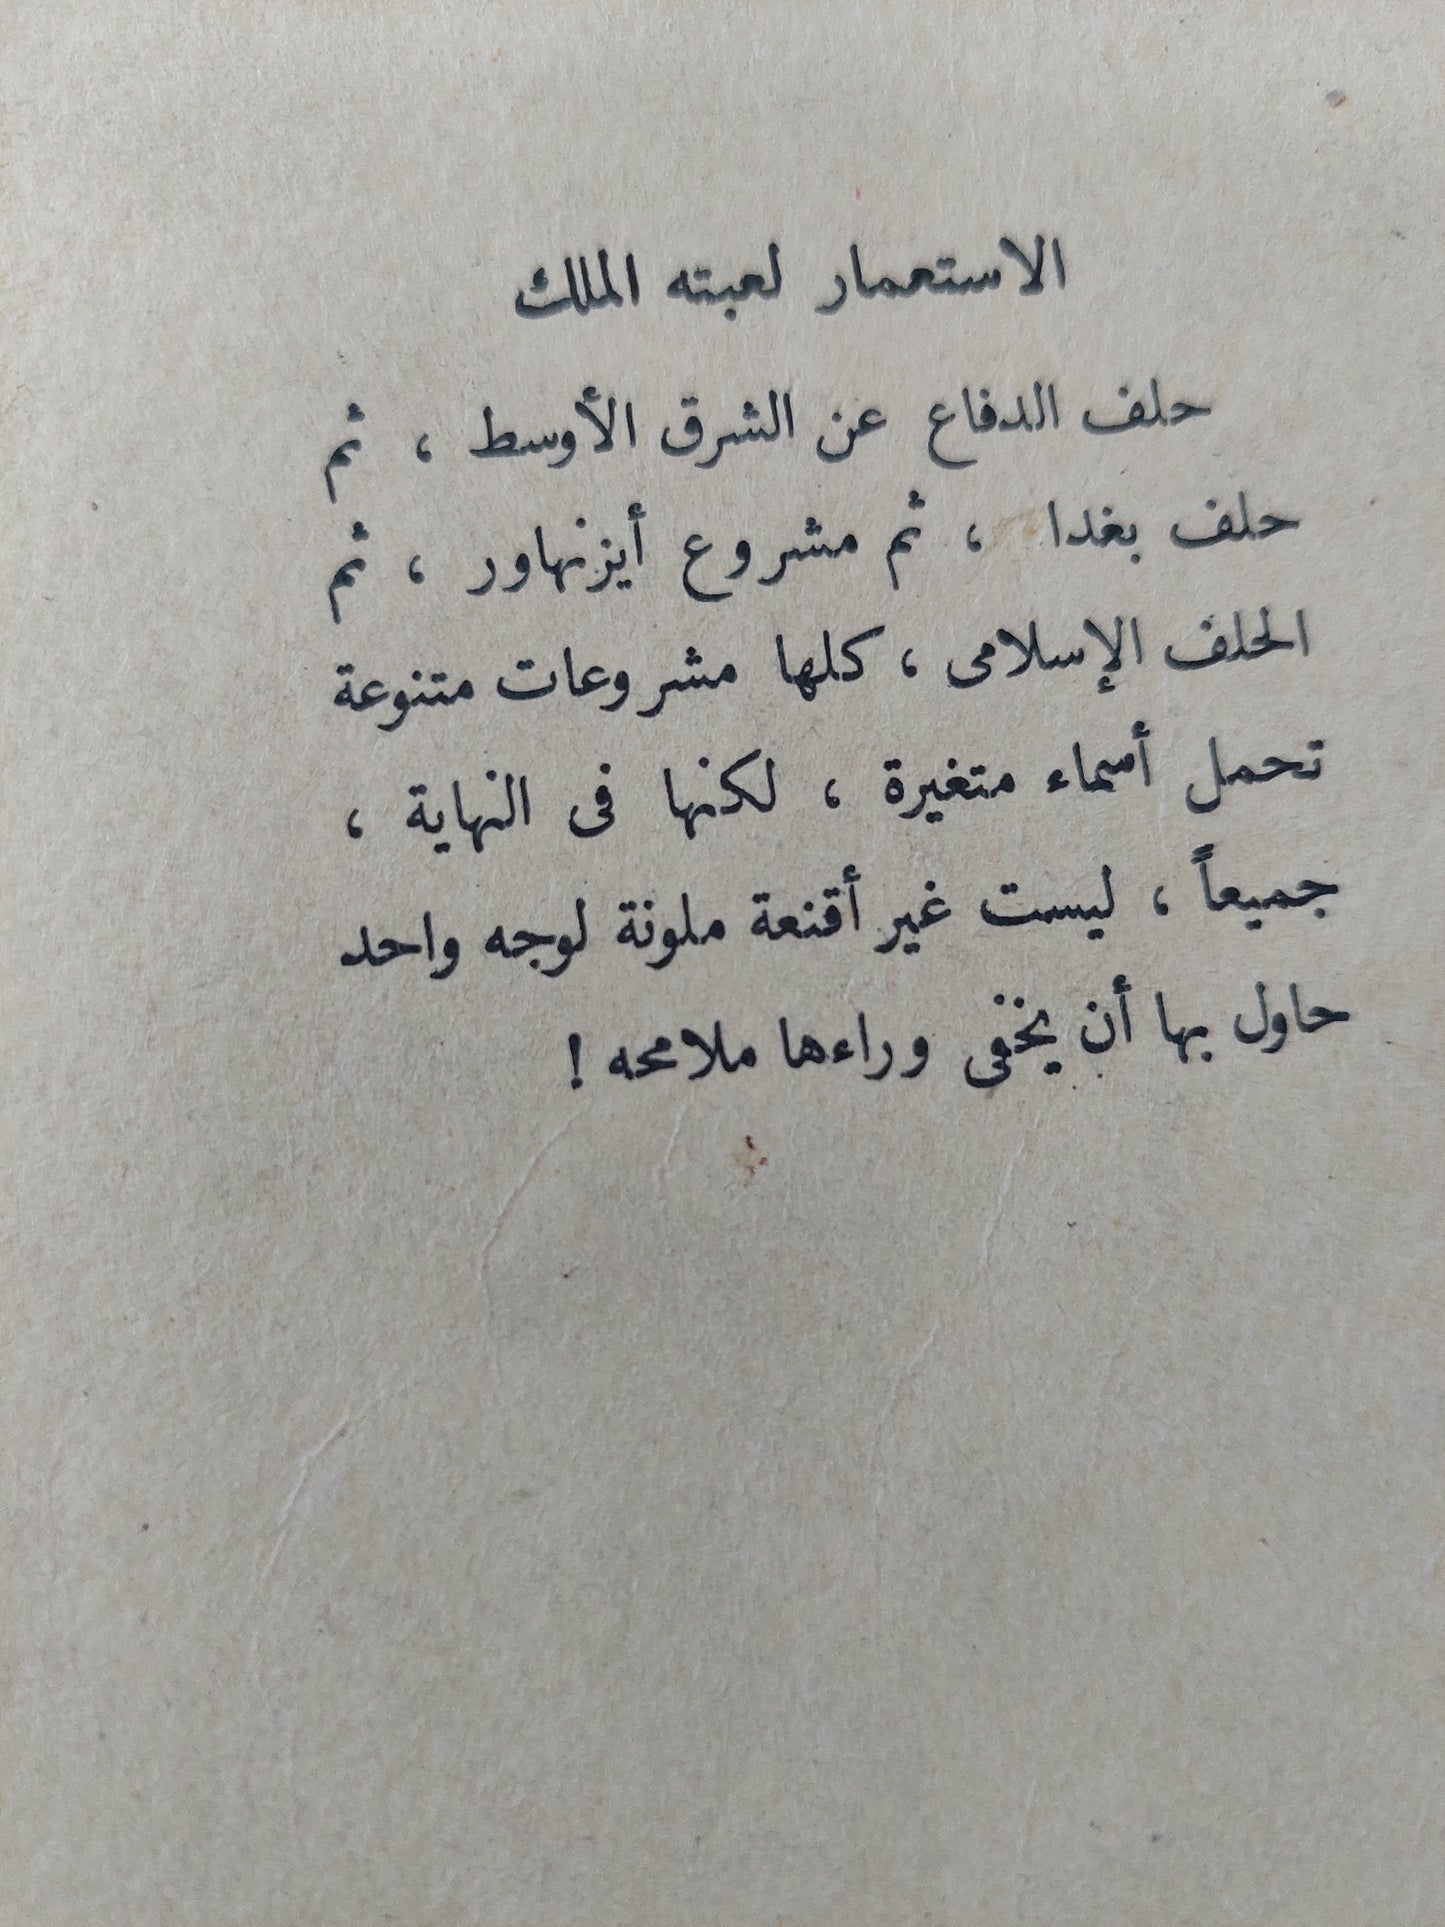 الاستعمار لعبته الملك
حلف الدفاع عن الشرق الأوسط ، ثم
حلف بغدا ، ثم مشروع أيزنهاور ، ثم
الحلف الإسلامى ، كلها مشروعات متنوعة
تحمل أسماء متغيرة ، لكنها فى النهاية ،
جميعاً ، ليست غير أقنعة ملونة لوجه واحد
حاول بها أن يخفى وراءها ملامحه !